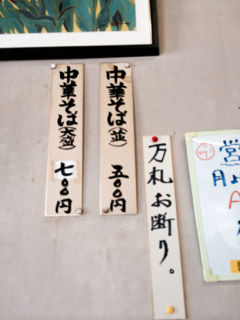 中華そば(並) 五〇〇円
中華そば(大盛) 七〇〇円
万札お断り。
営
月よ